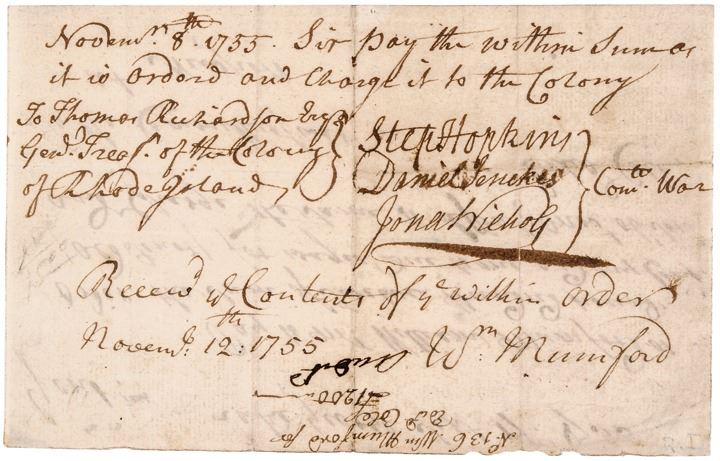 Novemr. 8th 1755. Sir pay the within Sum as
it is Orderd and Charge it to the Colony
To Thomas Richardson Esqr
Genl. Treasr. of the Colony
of Rhode Island
Step Hopkins
Daniel Jenckes
Jona Nichols
Comte. War
Receivd ye Contents of ye within order
Novemr. 12th: 1755
Wm. Mumford
No 136 Wm Mumford for
£1200